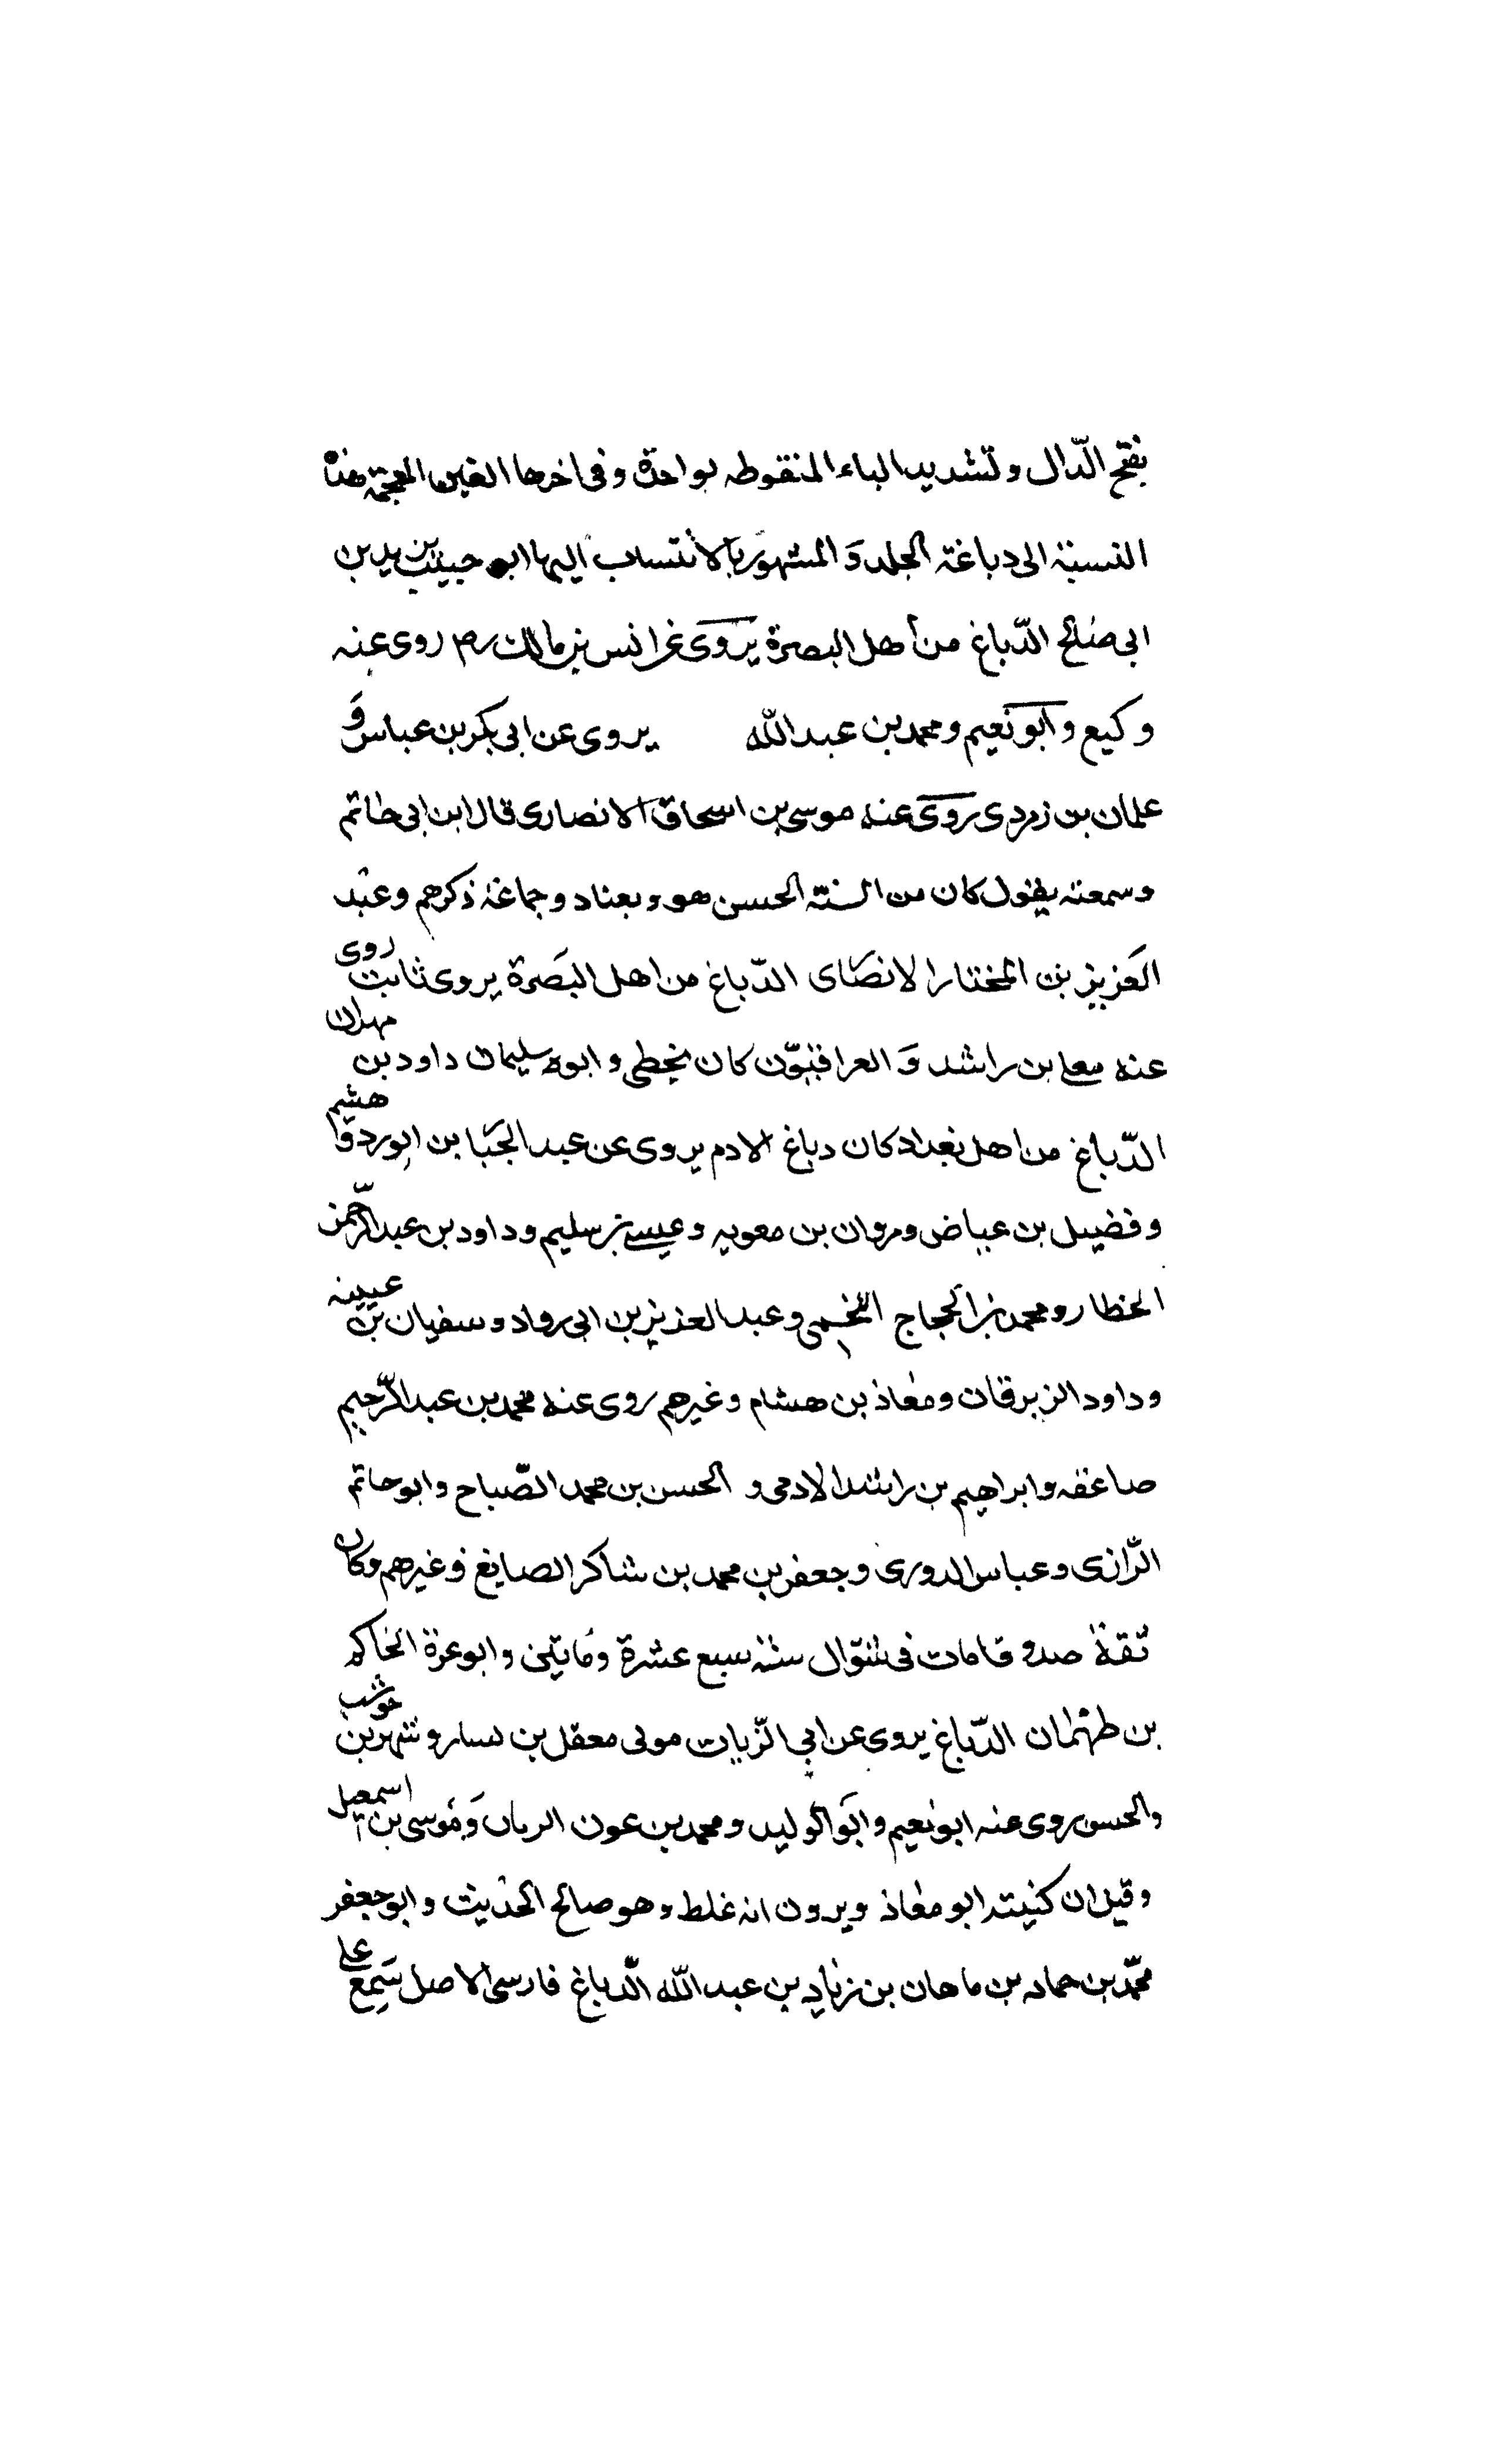 بفتح الدّال وتشديد الباء المنقوطه بواحدة وفى اخرها الغين المعجمة هذه
النسبة الى دباغة الجلد وَ المشهور بالانتساب اليها ابو حبيب يزيد بن
ابى صالح الدّباغ من أهل البصرة يروى عن انس بن مالك رم روى عنه
وكيع وابو نعيم ومحمد بن عبد الله يروى عن ابى بكر بن عباس وَ
علمان بن زمردى روى عنه موسى بن اسحاق الانصارى قال ابن ابى حاتم
وسمعته يقول كان من السنة الحسن هو وبعناد وجماعة ذكرهم وعبد
العزيز بن المختار الانصاى الدّباغ من اهل البصرة يروى ثابت روى
عنه معلى بن راشد وَ العراقيّون كان يخطى وابو سليمان داود بن مهران
الدّباغ من اهل بغداد كان دباغ الادم يروى عن عبد الجبا بن ابورد وا هشيم
وفضيل بن عياض ومروان بن معويه وعيسى بن سليم وداود بن عبد الرّحمن
الخطار ومحمد بن الحجاج اللخمى وعبد العزيز بن ابى رواد وسفيان بن عيينه
وداود الزبرقان ومعاذ بن هشام وغيرهم روى عنه محمد بن عبد الرّحيم
صاعقه وابراهيم بن راشد الادمى و الحسن بن محمد الصّباح وابو حاتم
الرّازى وعباس الدورى وجعفر بن محمد بن شاكر الصايغ وغيرهم وكان
ثقة صدوقا مات فى شوّال سنة سبع عشرة ومايتين وابو عزة الحاكم
بن طهمان الدّباغ يروى عن ابي الرّبات مولى معقل بن يسار وشهر بن حوشب
والحسن روى عنه ابو نعيم وابو الوليد ومحمد بن عون الرمان وَموسى بن اسمعيل
وقيل ان كنيته ابو معاذ ويرون انه غلط وهو صالح الحديث وابو جعفر
محمّد بن حماد بن ماهان بن زياد بن عبد الله الدّباغ فارسى الاصل سَمِعَ على